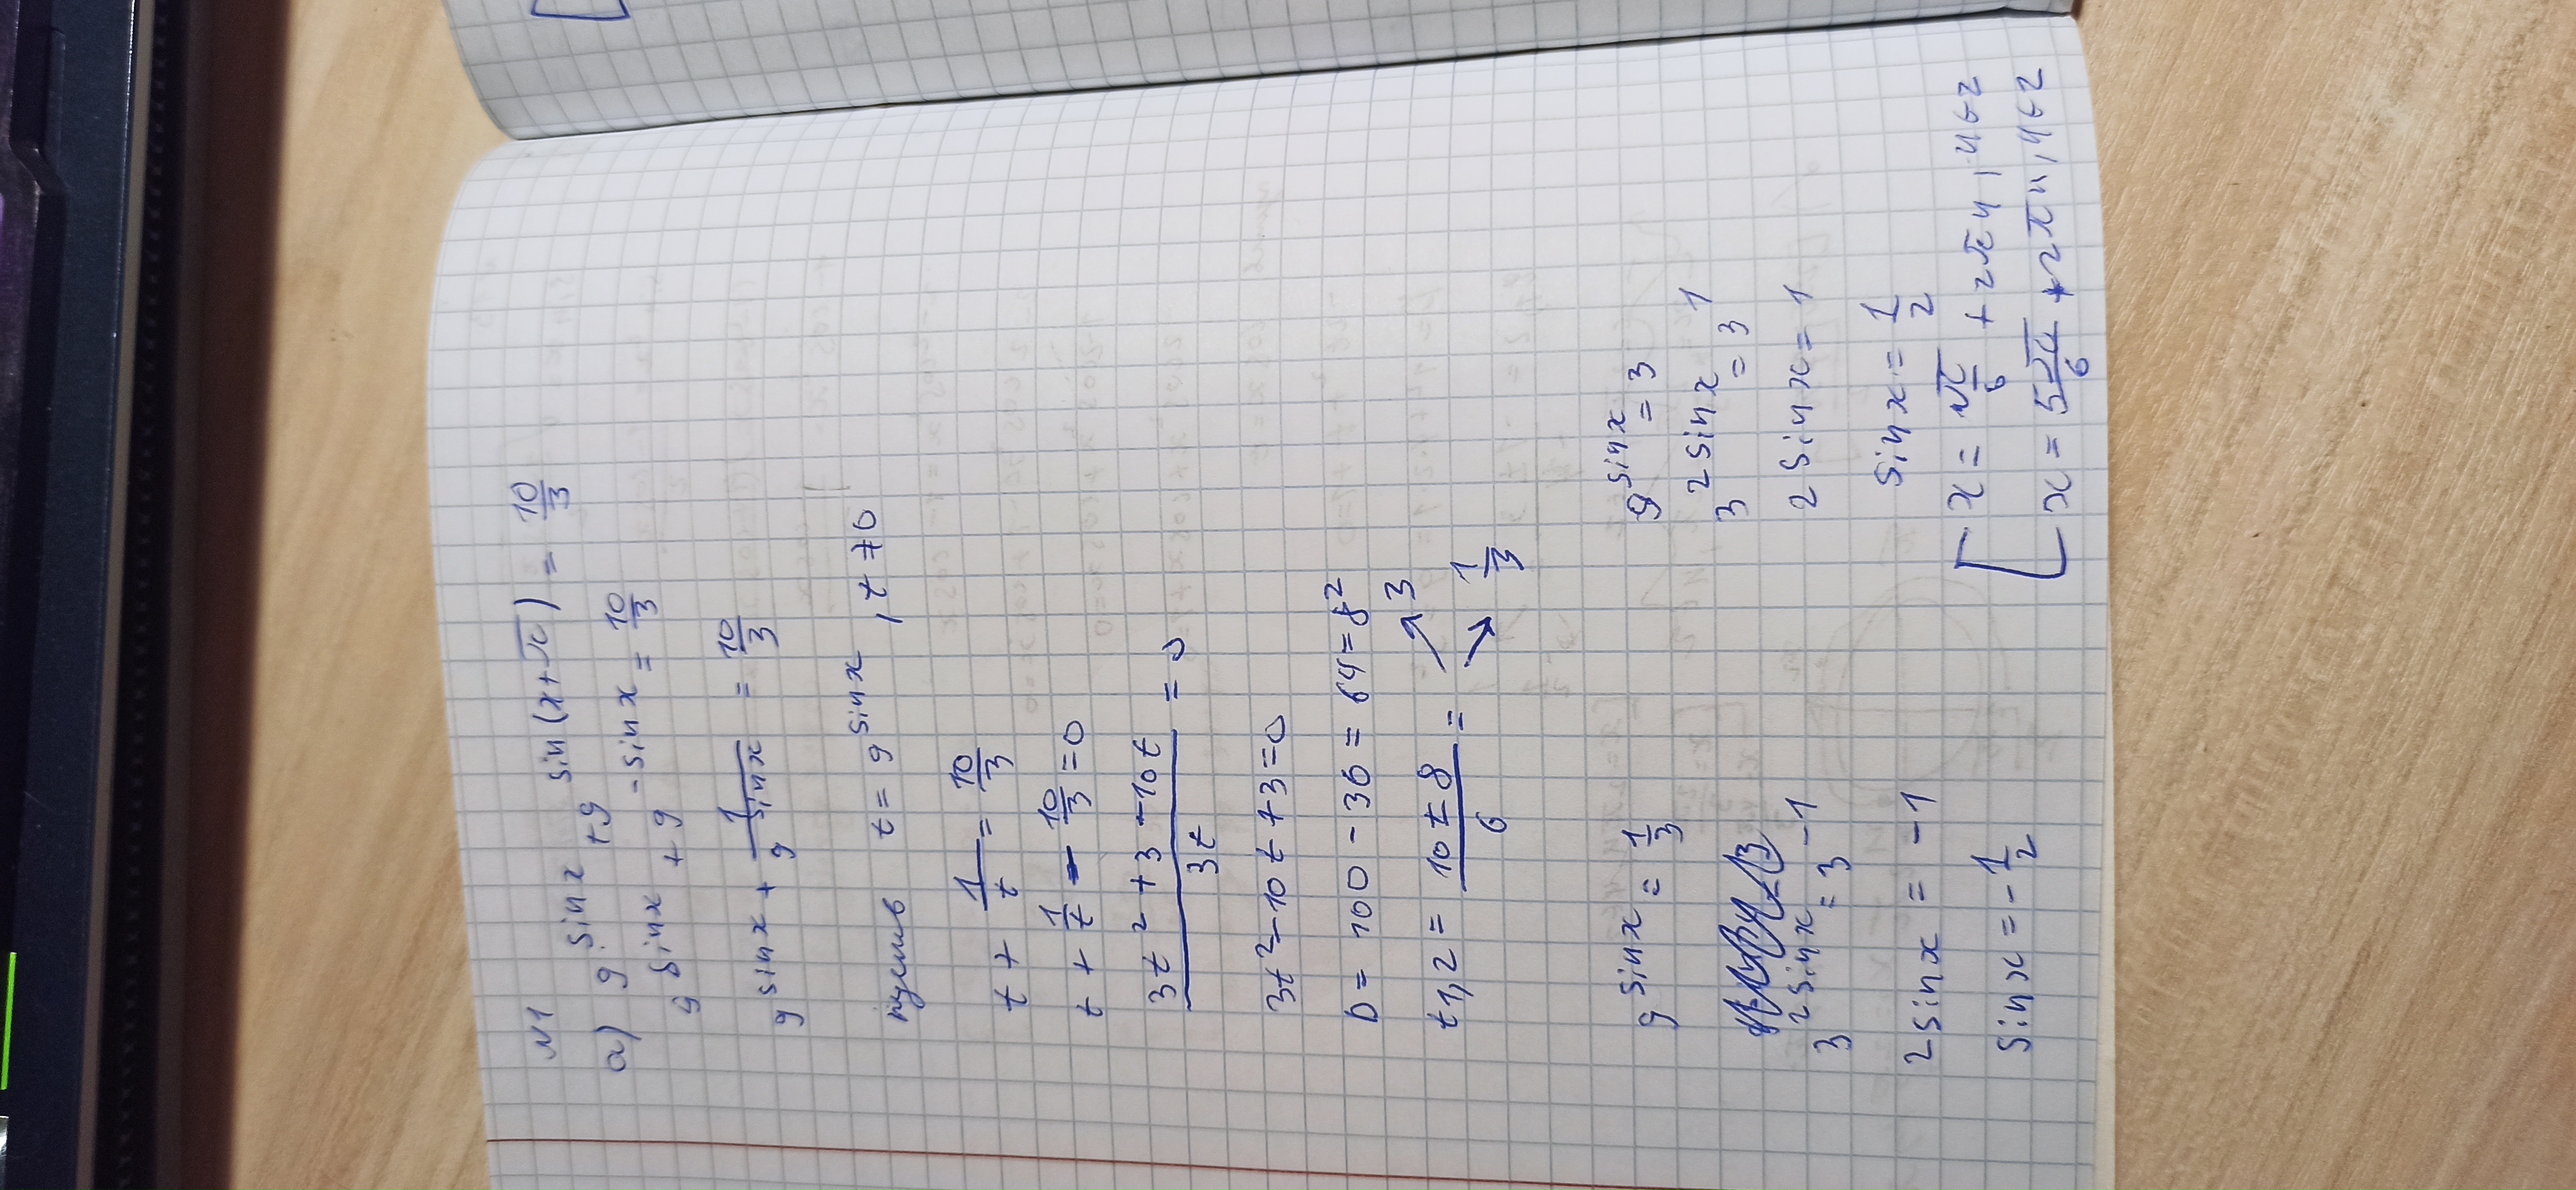 №1
а) 9^sinx + 9^sin(x+π) = 10/3
9^sinx + 9^-sinx = 10/3
9^sinx + 1/9^sinx = 10/3
пусть t = 9^sinx, t ≠ 0
t + 1/t = 10/3
t + 1/t - 10/3 = 0
(3t² + 3 - 10t)/3t = 0
3t² - 10t + 3 = 0
D = 100 - 36 = 64 = 8²
t1,2 = (10 ± 8)/6 = ↗ 3
↘ 1/3
9^sinx = 1/3
3^2sinx = 3^-1
2sinx = -1
sinx = -1/2
9^sinx = 3
3^2sinx = 3^1
2sinx = 1
sinx = 1/2
[ x = π/6 + 2πn, n∈Z
x = 5π/6 + 2πn, n∈Z